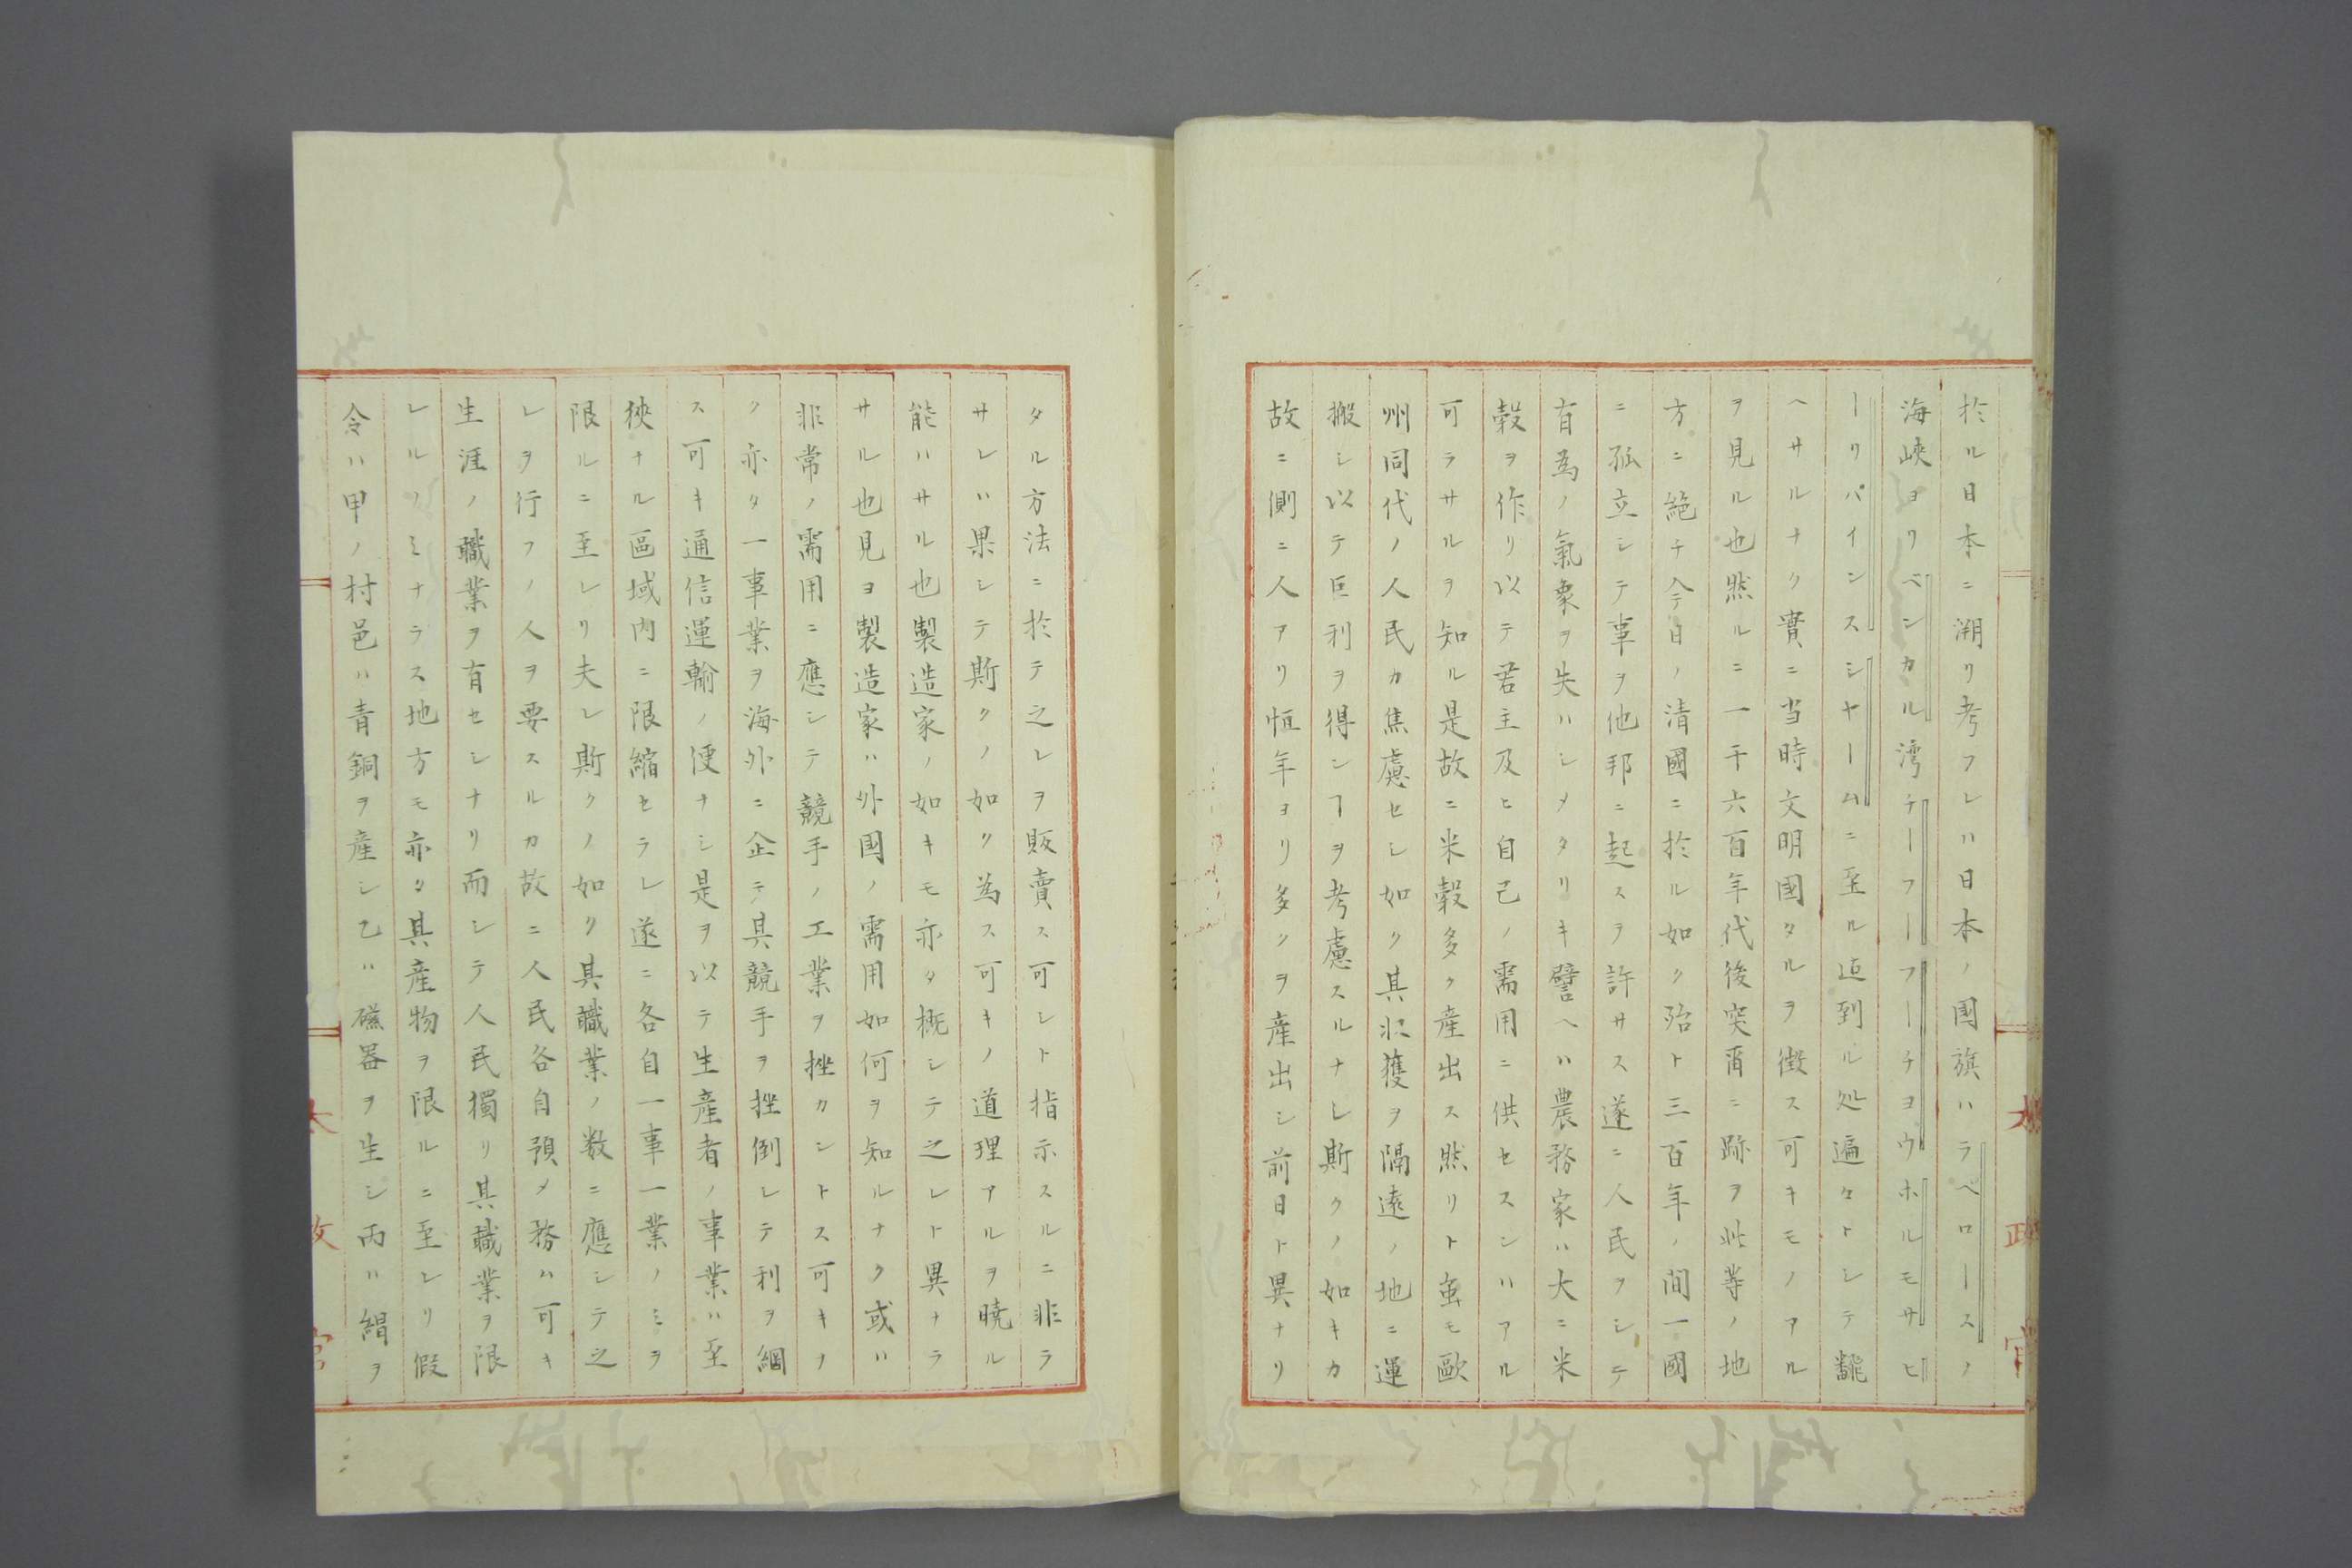 於ル日本ニ溯リ考フレハ日本ノ國旗ハラベロースノ
海峽ヨリベンカル湾チーフーフーチヨウホルモサヒ
ーリパインスシヤームニ至ル迠到ル処遍々トシテ飜
ヘサルナク實ニ当時文明國タルヲ徴ス可キモノアル
ヲ見ル也然ルニ一千六百年代後突甭ニ跡ヲ此等ノ地
方ニ絶チ今日ノ清國ニ於ル如ク殆ト三百年ノ間一國
ニ孤立シテ事ヲ他邦ニ起スヲ許サス遂ニ人民ヲシテ
有為ノ氣象ヲ失ハシメタリキ譬ヘハ農務家ハ大ニ米
穀ヲ作リ以テ君主及ヒ自己ノ需用ニ供セスンハアル
可ラサルヲ知ル是故ニ米穀多ク産出ス然リト虽モ歐
州同代ノ人民カ焦慮セシ如ク其収獲ヲ隔遠ノ地ニ運
搬シ以テ巨利ヲ得ンヿヲ考慮スルナレ斯クノ如キカ
故ニ側ニ人アリ恒年ヨリ多クヲ産出シ前日ト異ナリ
タル方法ニ於テ之レヲ販賣ス可シト指示スルニ非ラ
サレハ果シテ斯クノ如ク為ス可キノ道理アルヲ曉ル
能ハサル也製造家ノ如キモ亦タ概シテ之レト異ナラ
サル也見ヨ製造家ハ外國ノ需用如何ヲ知ルナク或ハ
非常ノ需用ニ應シテ競手ノ工業ヲ挫カントス可キナ
ク亦タ一事業ヲ海外ニ企テ其競手ヲ挫倒シテ利ヲ綱
ス可キ通信運輸ノ便ナシ是ヲ以テ生産者ノ事業ハ至
狹ナル區域内ニ限縮セラレ遂ニ各自一事一業ノミヲ
限ルニ至レリ夫レ斯クノ如ク其職業ノ数ニ應シテ之
レヲ行フノ人ヲ要スルカ故ニ人民各自預メ務ハ可キ
生涯ノ職業ヲ有セシナリ而シテ人民獨リ其職業ヲ限
レルノミナラス地方モ亦タ其産物ヲ限ルニ至レリ假
令ハ甲ノ村邑ハ青銅ヲ産シ乙ハ磁器ヲ生シ丙ハ絹ヲ
太政官